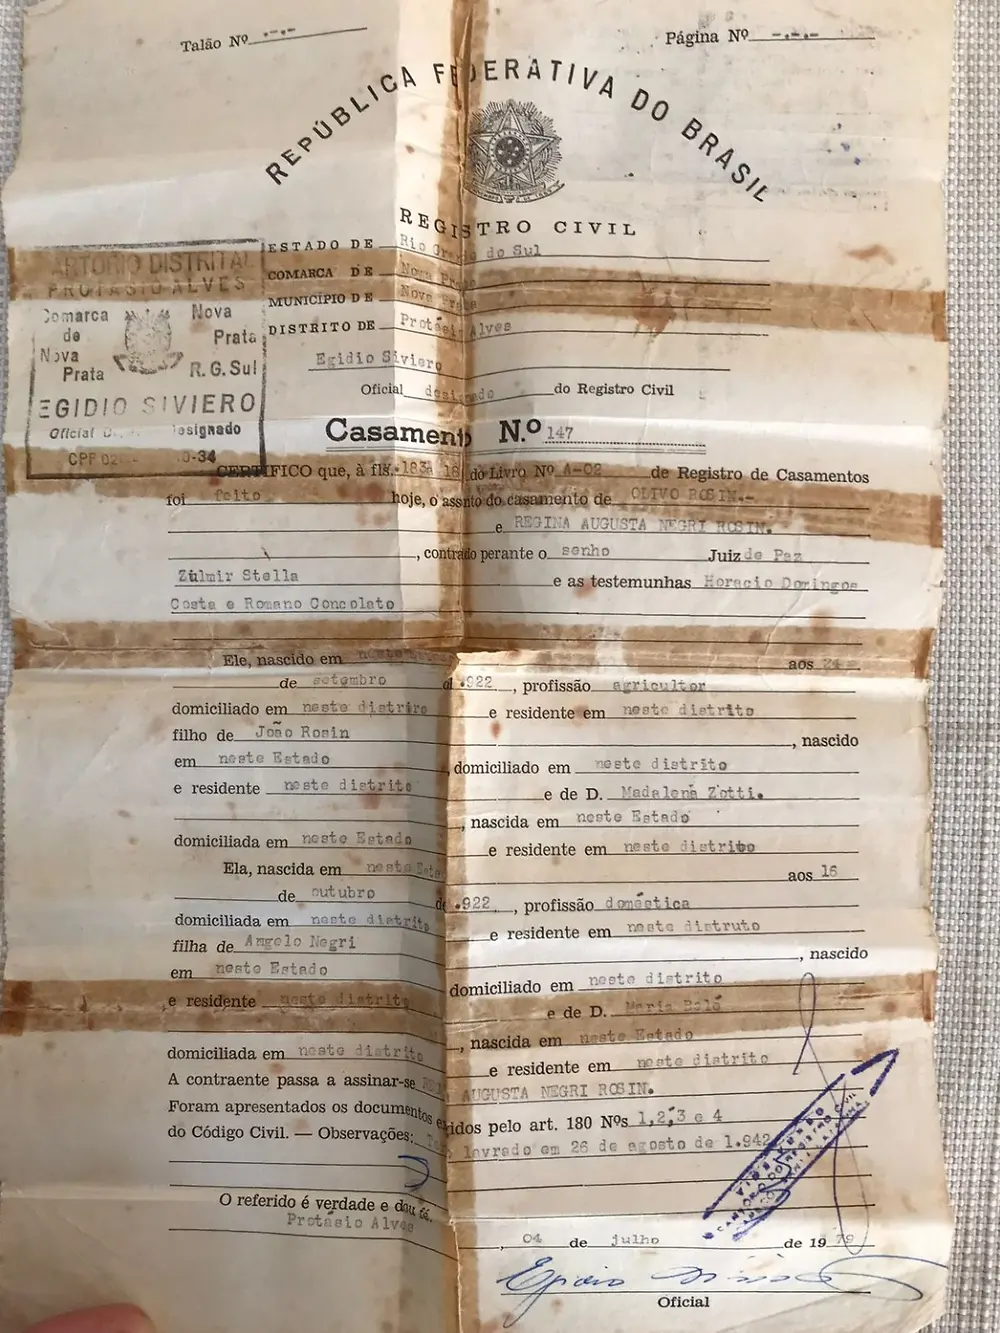 Talão Nº -.-.-
Página Nº -.-.-
REPÚBLICA FEDERATIVA DO BRASIL
REGISTRO CIVIL
ESTADO DE Rio Grande do Sul
COMARCA DE Nova Prata
MUNICÍPIO DE Nova Prata
DISTRITO DE Protásio Alves
CARTORIO DISTRITAL
PROTASIO ALVES
Comarca de Nova Prata
Nova Prata
R.G.Sul
EGIDIO SIVIERO
Oficial designado
CPF 02 0-34
Egidio Siviero
Oficial designado do Registro Civil
Casamento N.º 147
CERTIFICO que, à fls. 183a 18 do Livro Nº A-02 de Registro de Casamentos
foi feito hoje, o assnto do casamento de OLIVO ROSIN.-
e REGINA AUGUSTA NEGRI ROSIN.
, contraído perante o senho Juiz de Paz
Zulmir Stella e as testemunhas Horacio Domingos
Costa e Romano Concolato
Ele, nascido em neste aos 24
de setembro .922 , profissão agricultor
domiciliado em neste distriro e residente em neste distrito
filho de João Rosin , nascido
em neste Estado , domiciliado em neste distrito
e residente neste distrito e de D. Madalena Zotti.
, nascida em neste Estado
domiciliada em neste Estado e residente em neste distrito
Ela, nascida em neste Estado aos 16
de outubro de .922 , profissão doméstica
domiciliada em neste distrito e residente em neste distruto
filha de Angelo Negri , nascido
em neste Estado domiciliado em neste distrito
e residente neste distrito e de D. Maria Bolá
, nascida em neste Estado
domiciliada em neste distrito e residente em neste distrito
A contraente passa a assinar-se AUGUSTA NEGRI ROSIN.
Foram apresentados os documentos exigidos pelo art. 180 Nºs 1,2,3 e 4
do Código Civil. — Observações: lavrado em 26 de agosto de 1.942
O referido é verdade e dou fé.
Protásio Alves
, 04 de julho de 1979
Egidio Siviero
Oficial
CARTORIO DO REGISTRO CIVIL